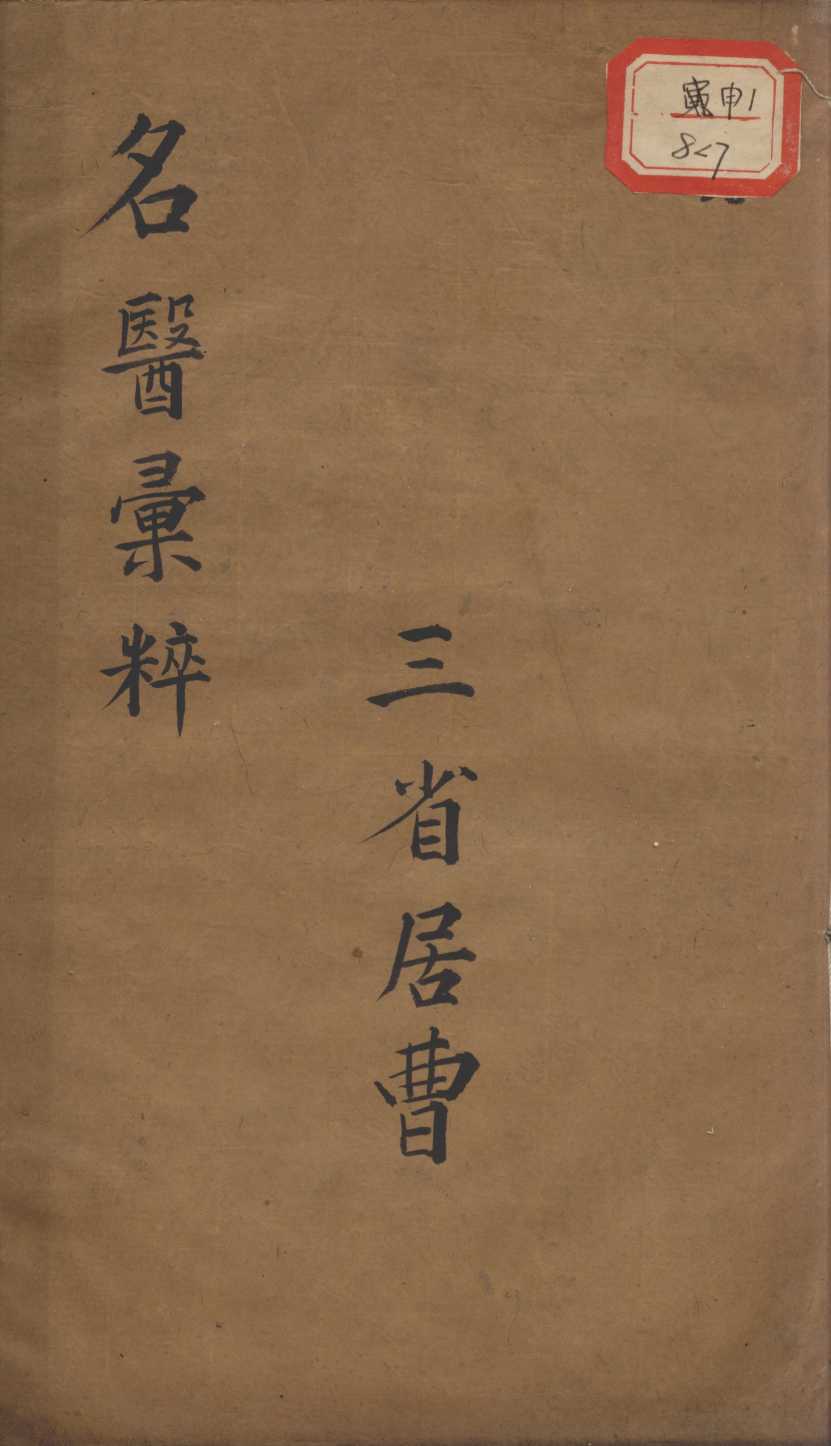 寅申1
827
三省居曹
名醫彙粹